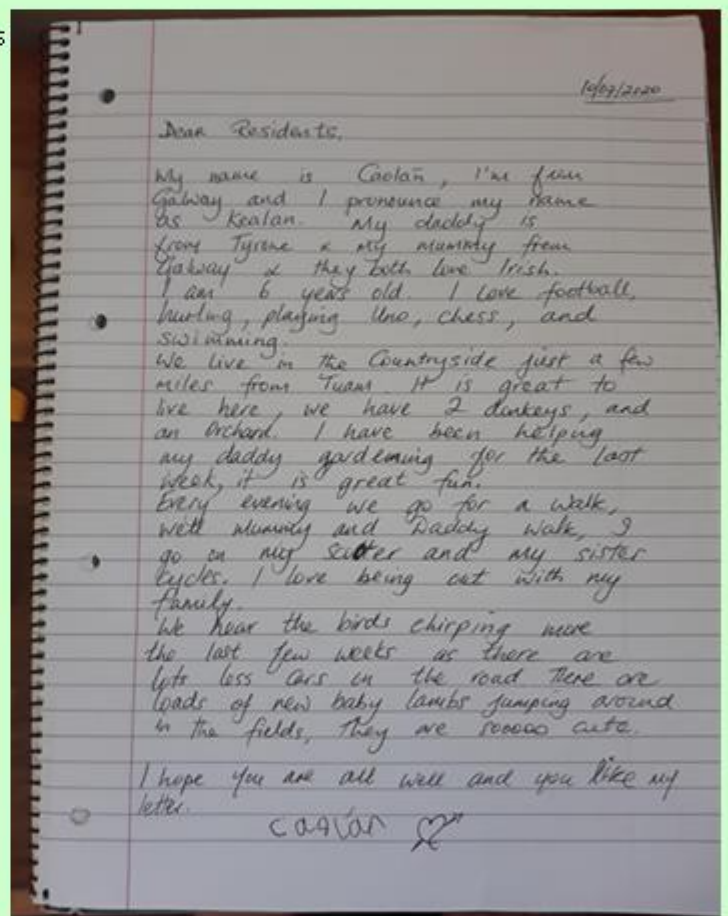 10/07/2020
Dear Residents,
My name is Caolan, I'm from
Galway and I pronounce my name
as Kealan. My daddy is
from Tyrone & my mummy from
Galway & they both love Irish.
I am 6 years old. I love football,
hurling, playing Uno, chess, and
swimming.
We live in the Countryside just a few
miles from Tuam. It is great to
live here, we have 2 donkeys, and
an Orchard. I have been helping
my daddy gardening for the last
week, it is great fun.
Every evening we go for a walk,
well Mummy and Daddy walk, I
go on my scooter and my sister
cycles. I love being out with my
family.
We hear the birds chirping more
the last few weeks as there are
lots less cars on the road There are
loads of new baby lambs jumping around
in the fields, They are sooooo cute.
I hope you are all well and you like my
letter.
caolan